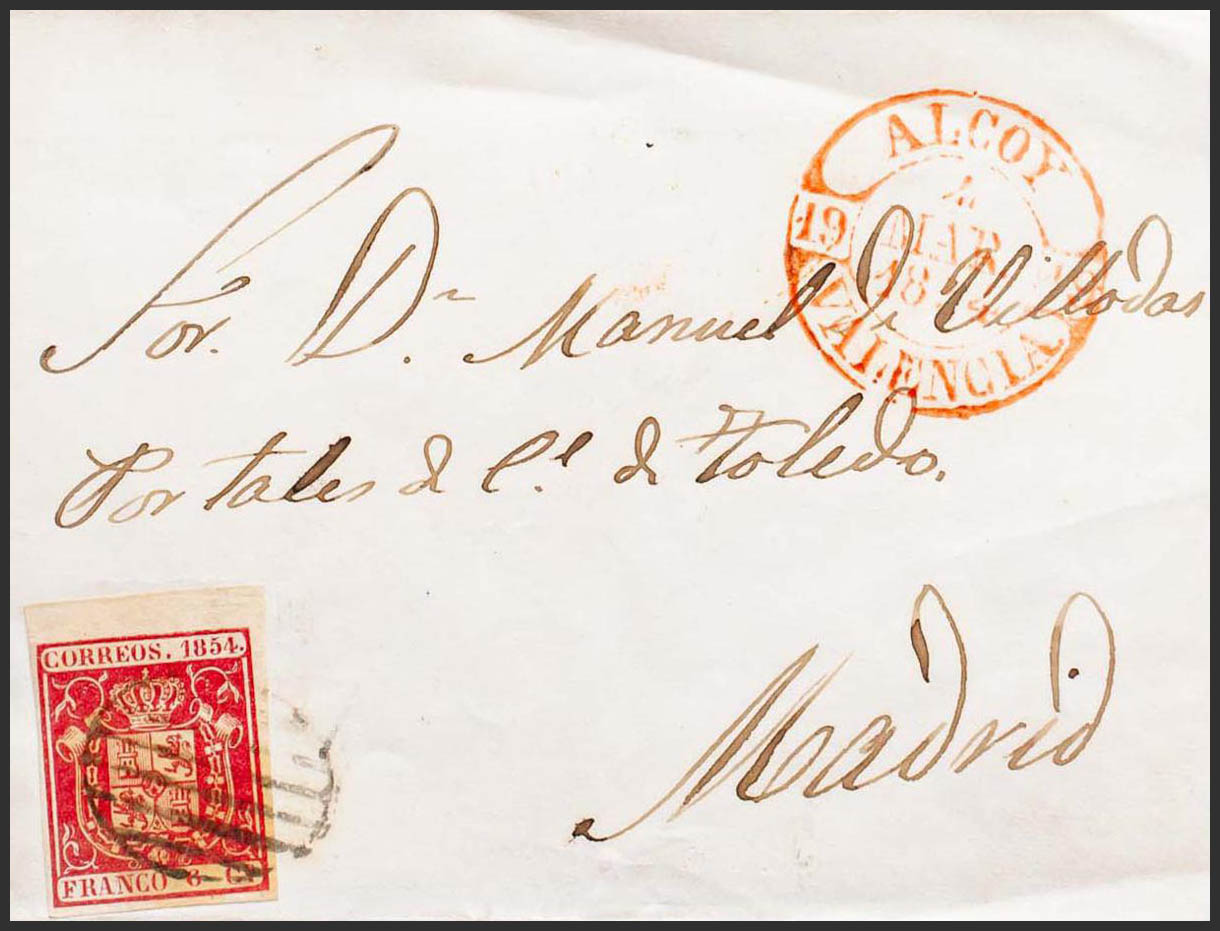 ALCOY
4
MAR
19
18
VALENCIA.
Sor. Dn. Manuel de Villodas
Portales de C.e de Toledo.
Madrid
CORREOS. 1854.
FRANCO 6 Cs